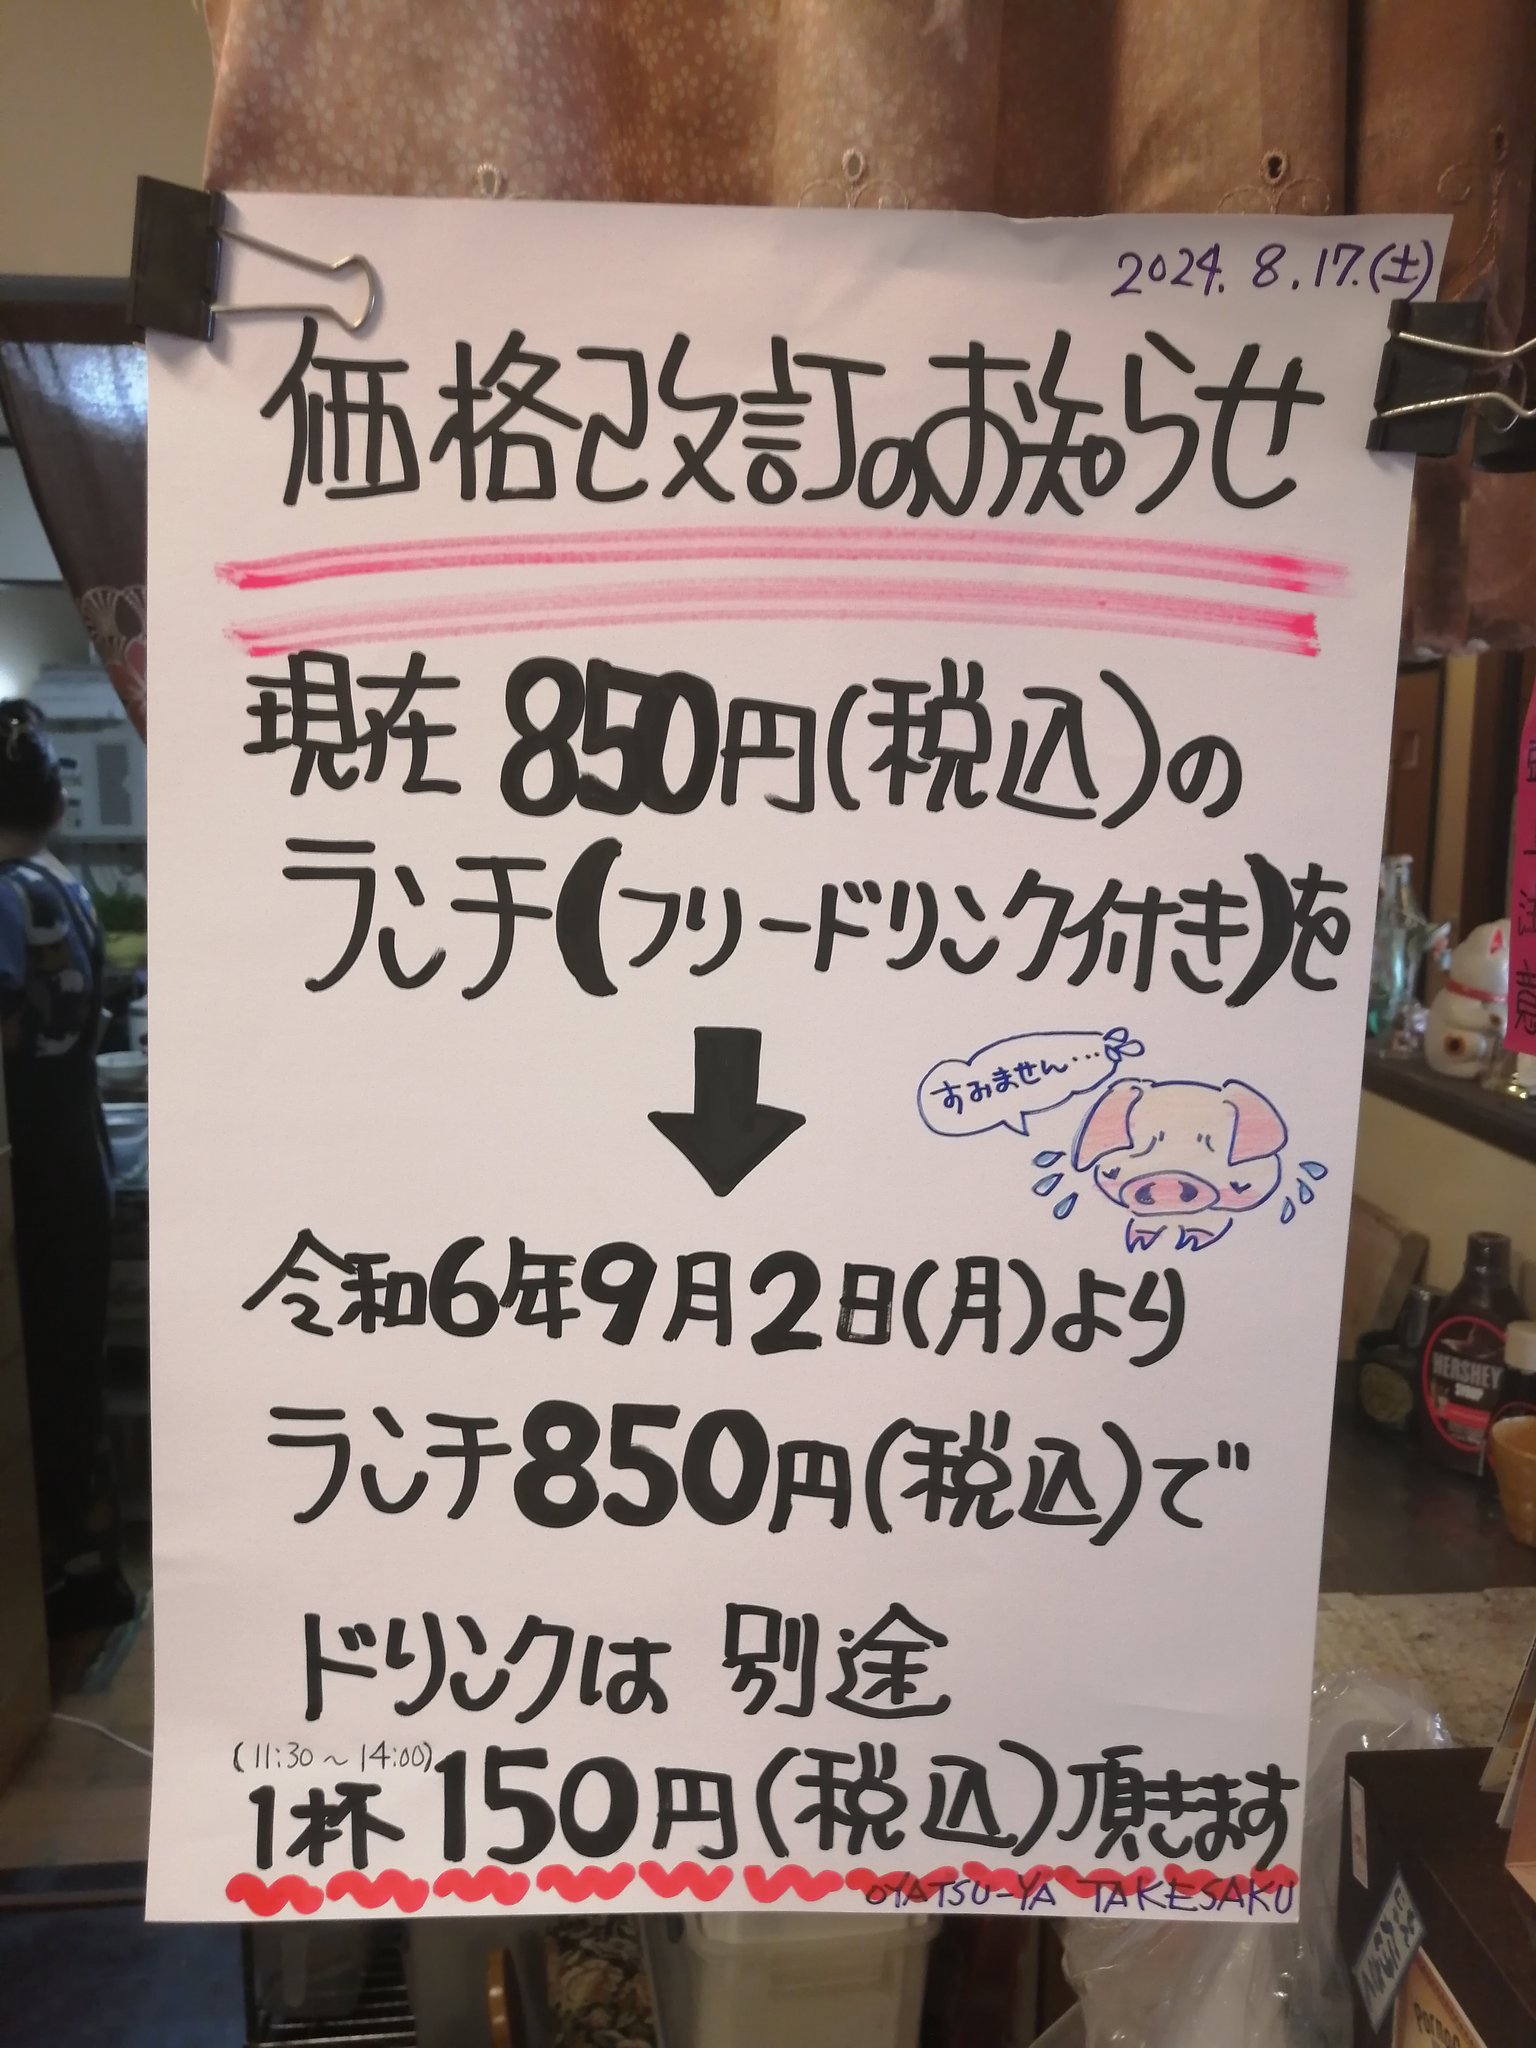 2024.8.17.(土)
価格改訂のお知らせ
現在850円(税込)の
ランチ(フリードリンク付き)を
すみません…
令和6年9月2日(月)より
ランチ850円(税込)で
ドリンクは 別途
(11:30～14:00)
1杯150円(税込)頂きます
OYATSU-YA TAKESAKU
HERSHEY'S
SYRUP